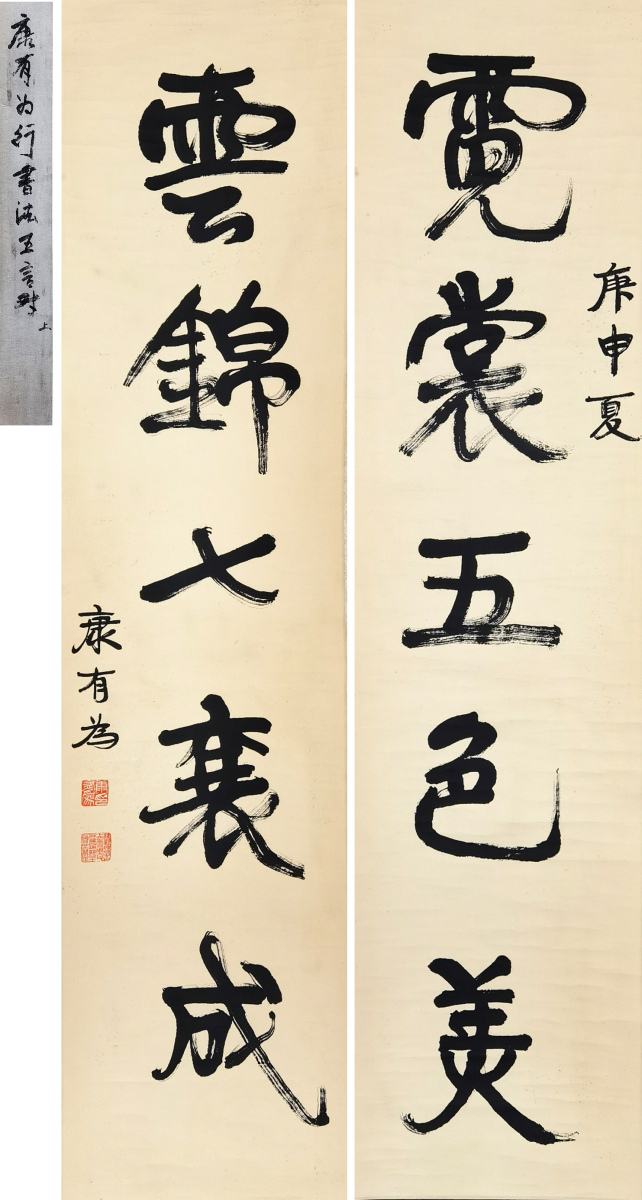 庚申夏
霓裳五色美
雲錦七襄成
康有為
康有为行書法五言對
上